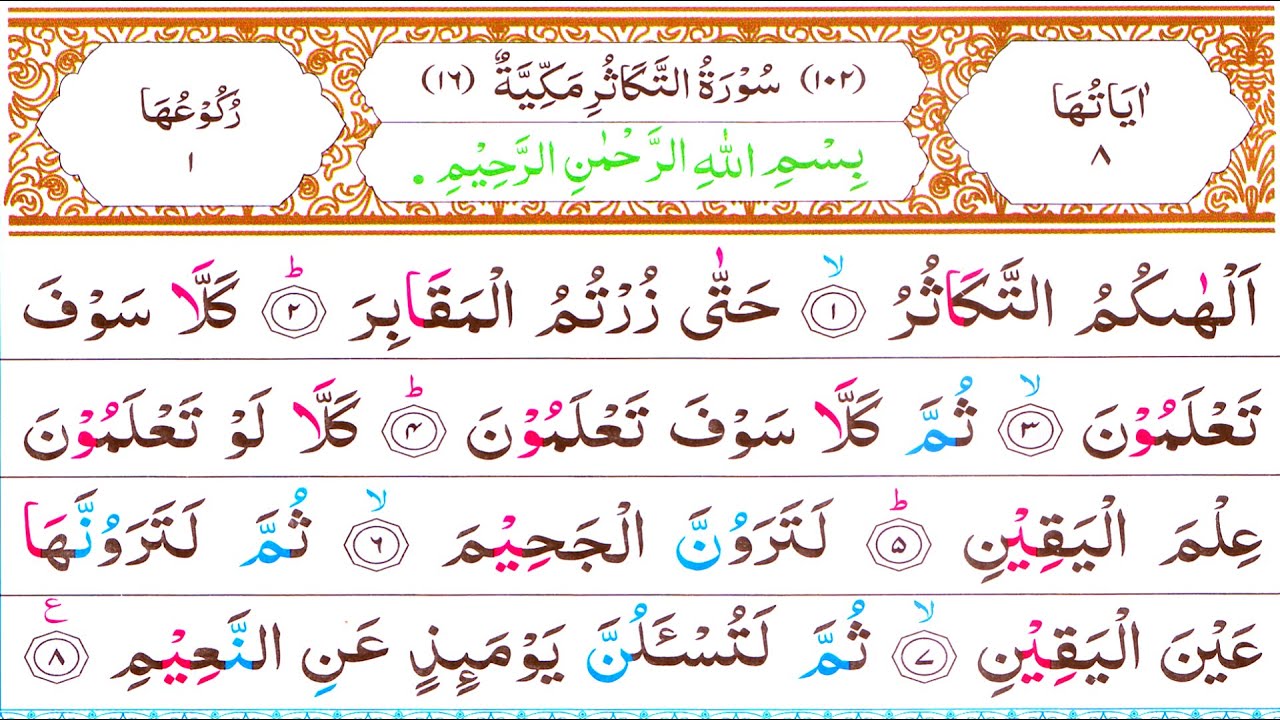 اٰیَاتُهَا
۸
(۱۰۲) سُوْرَةُ التَّكَاثُرِ مَكِّيَّةٌ (۱۶)
رُكُوْعُهَا
۱
بِسْمِ اللّٰهِ الرَّحْمٰنِ الرَّحِيْمِ .
اَلْهٰىكُمُ التَّكَاثُرُ ۙ﴿۱﴾ حَتّٰى زُرْتُمُ الْمَقَابِرَ ؕ﴿۲﴾ كَلَّا سَوْفَ
تَعْلَمُوْنَ ۙ﴿۳﴾ ثُمَّ كَلَّا سَوْفَ تَعْلَمُوْنَ ؕ﴿۴﴾ كَلَّا لَوْ تَعْلَمُوْنَ
عِلْمَ الْيَقِيْنِ ؕ﴿۵﴾ لَتَرَوُنَّ الْجَحِيْمَ ۙ﴿۶﴾ ثُمَّ لَتَرَوُنَّهَا
عَيْنَ الْيَقِيْنِ ۙ﴿۷﴾ ثُمَّ لَتُسْـَٔلُنَّ يَوْمَئِذٍ عَنِ النَّعِيْمِ ﴿۸﴾ ع